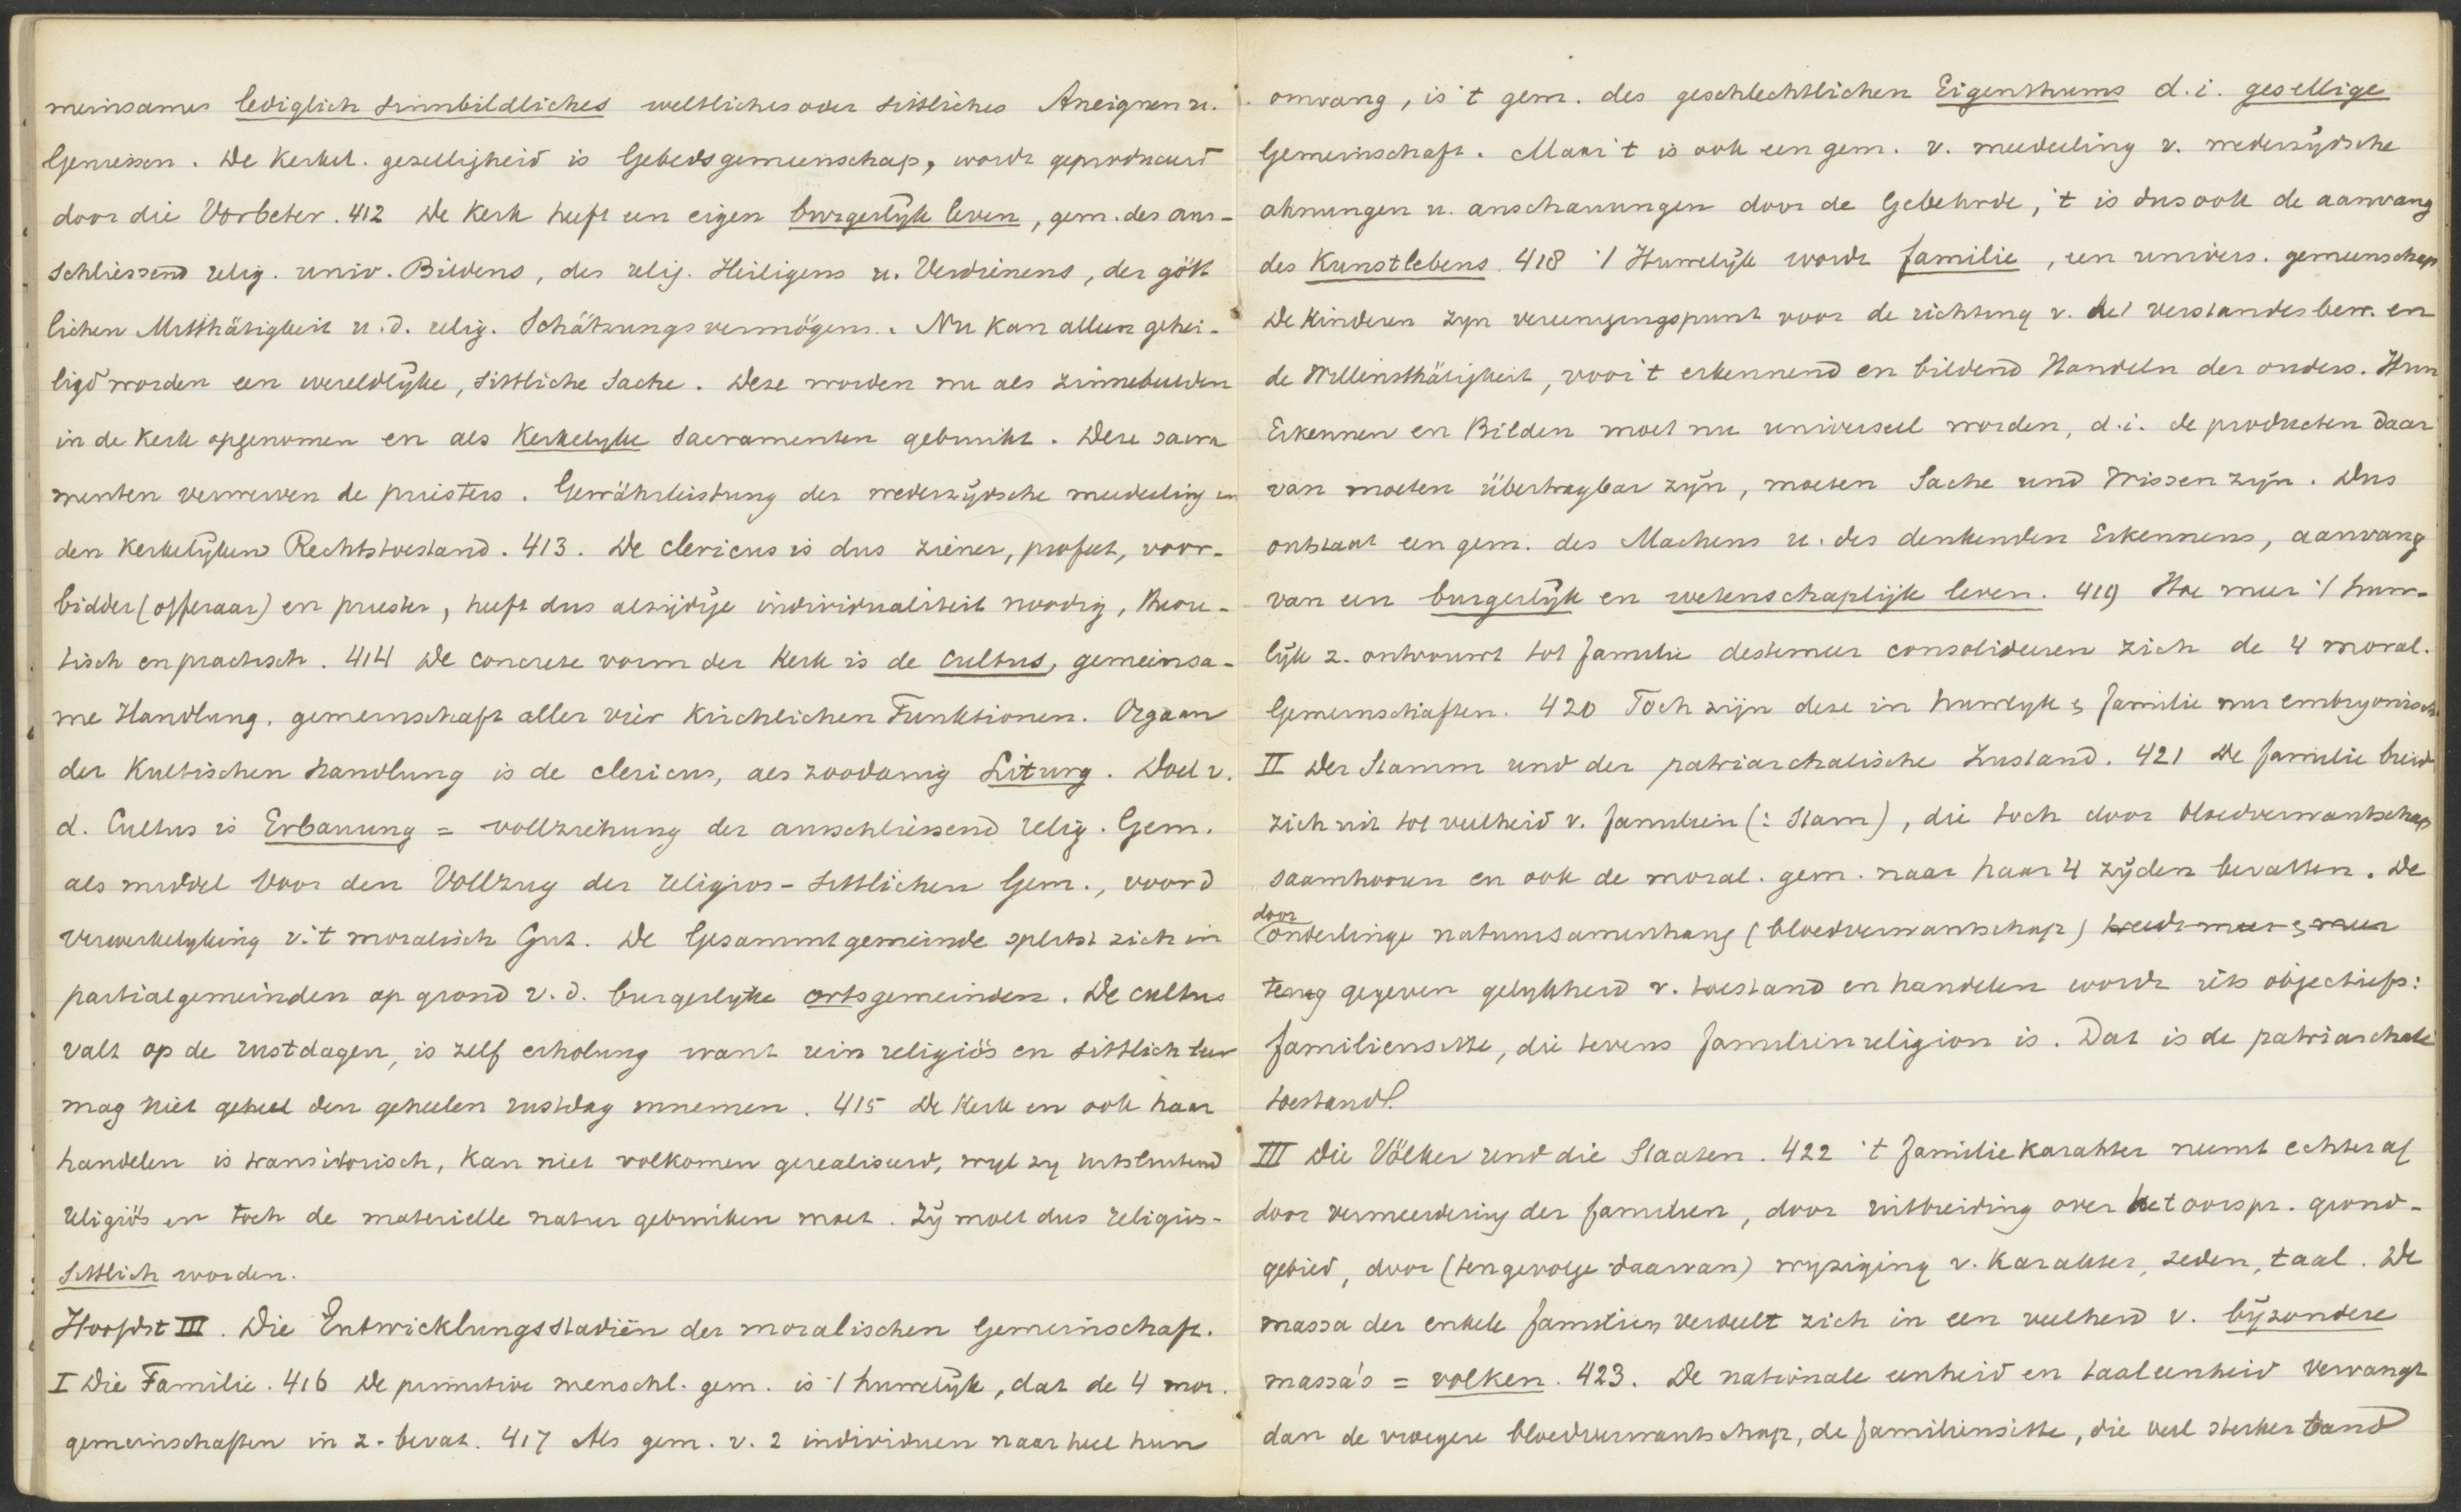 meinsames lediglich sinnbildliches weltliches oder sittliches Aneignen u.
Geniessen. De kerkel. gezelligheid is Gebedsgemeenschap, wordt geproduceerd
door die Vorbeter. 412 De Kerk heeft een eigen burgerlijk leven, gem. des aus-
schliessend relig. univ. Bildens, des relig. Heiligens u. Verdienens, der gött
lichen Mitthätigkeit u.d. relig. Schätzungsvermögens. Nu kan alleen gehei-
ligd worden een wereldlijke, sittliche Sache. Deze worden nu als zinnebeelden
in de Kerk opgenomen en als Kerkelyke Sacramenten gebruikt. Deze sacra
menten verwerven de priesters. Gewährleistung der wederzijdsche mededeeling in
den Kerkelijken Rechtstoestand. 413. De clericus is dus ziener, profeet, voor-
bidder (offeraar) en priester, heeft dus alzijdije individualiteit noodig, theore-
tisch en practisch. 414 De concrete vorm der Kerk is de cultus, gemeinsa-
me Handlung, gemeinschaft aller vier Kirchlichen Funktionen. Orgaan
der Kultischen Handlung is de clericus, als zoodanig Liturg. Doel v.
d. Cultus is Erbauung = vollziehung der ausschliessend relig. Gem.
als middel voor den Vollzug der religios-sittlichen Gem., voor d
verwerkelyking v. 't moralisch Gut. De Gesammtgemeinde splitst zich in
partialgemeinden op grond v. d. burgerlyke ortsgemeinden. De cultus
valt op de rustdagen, is zelf erholung want rein religiös en sittlich leer
mag niet geheel den geheelen rustdag innemen. 415 De Kerk en ook haar
handelen is transitorisch, kan niet volkomen gerealiseerd, wyl zy uitsluitend
religiös en toch de materielle natur gebruiken moet. Zij moet dus religiös-
sittlich worden.
Hoofdst III. Die Entwicklungsstadiën der moralischen Gemeinschaft.
I Die Familie. 416 De primitive menschl. gem. is 't huwelijk, dat de 4 mor.
gemeinschaften in z. bevat. 417 Als gem. v. 2 individuen naar heel hun
omvang, is 't gem. des geschlechtlichen Eigenthums d.i. gesellige
Gemeinschaft. Maar 't is ook een gem. v. mededeeling v. wederzijdsche
ahnungen u. anschauungen door de Gebehrde, 't is dus ook de aanvang
des Kunstlebens. 418 't Huwelijk wordt familie, een univers. gemeenschap
De Kinderen zyn vereenigingspunt voor de richting v. het verstandesbew. en
de Willensthätigkeit, voor 't erkennend en bildend Handeln der ouders. Hun
Erkennen en Bilden moet nu universeel worden, d.i. de producten daar
van moeten übertragbar zijn, moeten Sache und Wissen zijn. Dus
ontstaat een gem. des Machens u. des denkenden Erkennens, aanvang
van een burgerlijk en wetenschaplijk leven. 419 Hoe meer 't huwe-
lijk z. ontvouwt tot familie destemeer consolideeren zich de 4 moral.
Gemeinschaften. 420 Toch zijn deze in huwelyk & familie nur embryonisch
II Der Stamm und der patriarchalische Zustand. 421 De familie breidt
zich uit tot veelheid v. familien (: Stam), die toch door bloedverwantschap
saamhooren en ook de moral. gem. naar haar 4 zijden bevatten. De
door
onderlinge natuursamenhang (bloedverwantschap)
gegeven gelykheid v. toestand en handelen wordt iets objectiefs:
familiensitte, die tevens familienreligion is. Dat is de patriarchale
toestand.
III Die Völker und die Staaten. 422 't familie karakter neemt echter af
door vermeerdering der familien, door uitbreiding over het oorspr. grond-
gebied, door (tengevolge daarvan) wyziging v. Karakter, zeden, taal. De
massa der enkele familien verdeelt zich in een veelheid v. bijzondere
massa's = volken. 423. De nationale eenheid en taaleenheid vervangt
dan de vroegere bloedverwantschap, de familiensitte, die veel sterker band